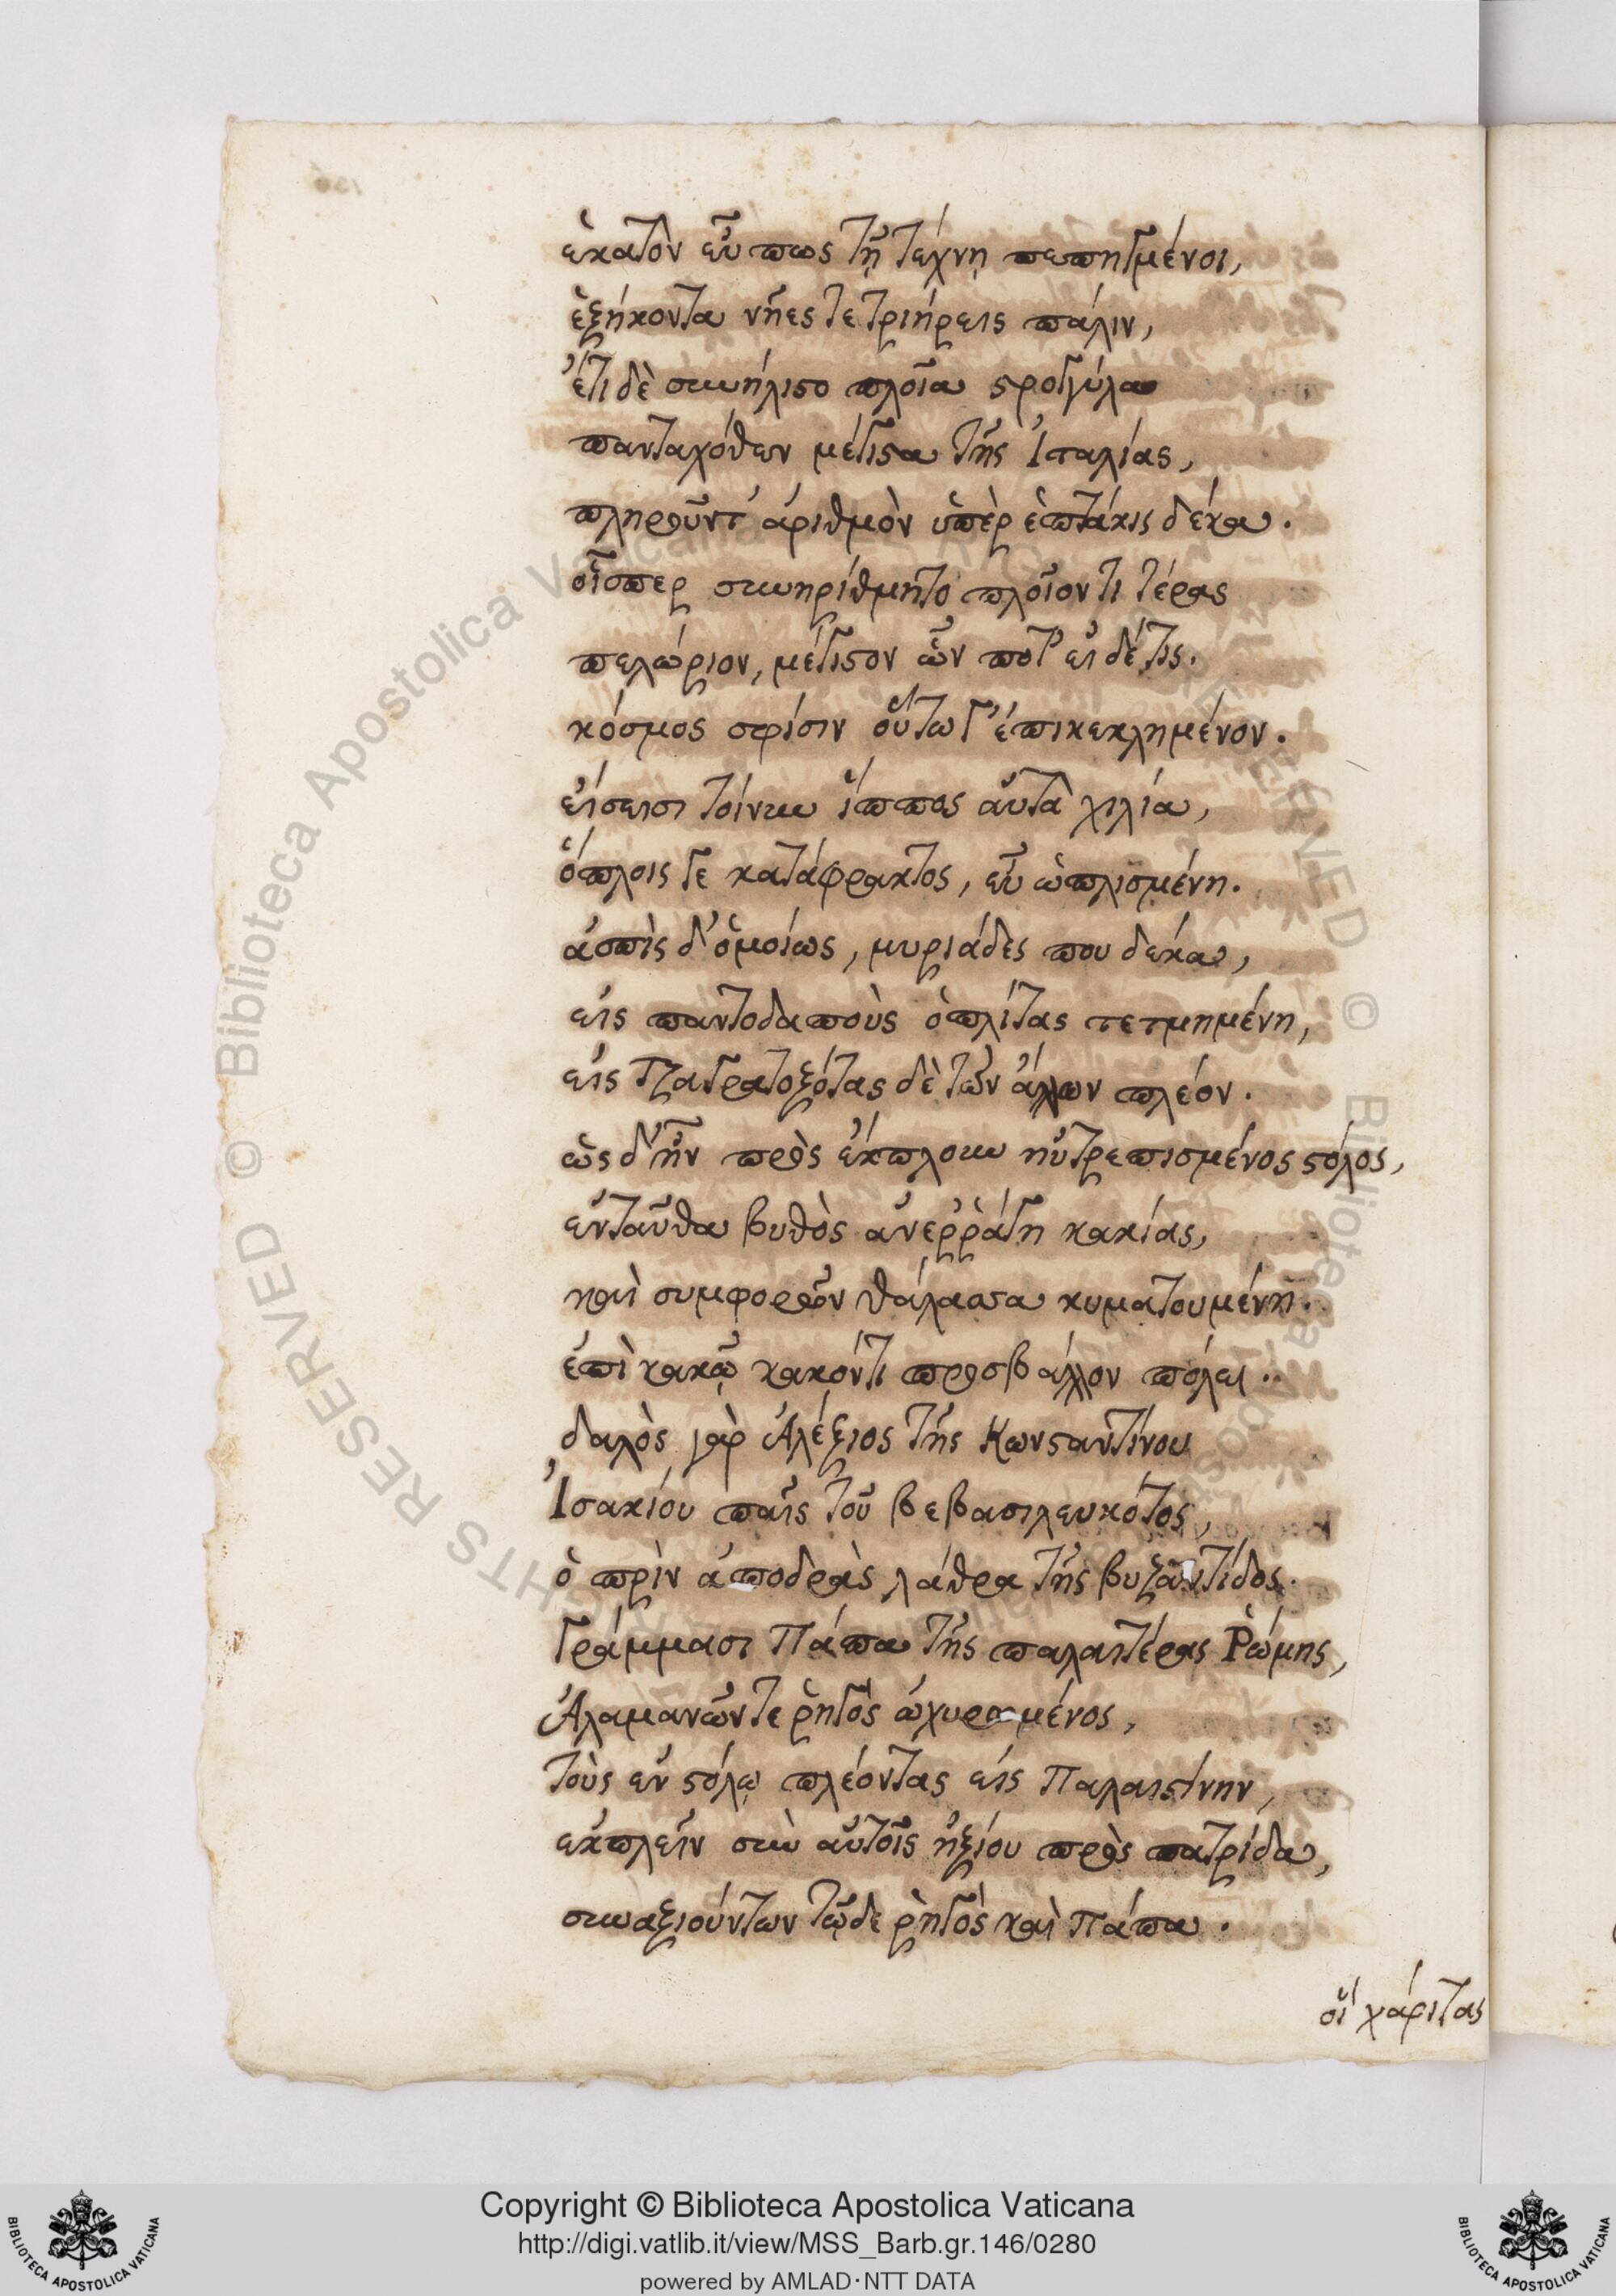 ἑκατὸν εὖ πως τῇ τέχνῃ πεπηγμένοι,
ἑξήκοντα νῆες τε τριήρεις πάλιν,
ἔτι δὲ συνήλιστο πλοῖα στρογγύλα
πανταχόθεν μέγιστα τῆς Ἰταλίας,
πληροῦντ' ἀριθμὸν ὑπὲρ ἑπτάκις δέκα.
οἷσπερ συνηρίθμητο πλοῖόν τι τέρας
πελώριον, μέγιστον ὧν ποτ' εἰδέ τις.
κόσμος σφίσιν οὕτω γ' ἐπικεκλημένον.
εἴσεισι τοίνυν ἵππος αὐτὰ χιλία,
ὅπλοις γε κατάφρακτος, εὖ ὡπλισμένη.
ἀσπὶς δ' ὁμοίως, μυριάδες που δέκα,
εἰς παντοδαποὺς ὁπλίτας τετμημένη,
εἰς τζαγρατοξότας δὲ τῶν ἄλλων πλέον.
ὡς δ' ἦν πρὸς ἔκπλουν ηὐτρεπισμένος στόλος,
ἐνταῦθα βυθὸς ἀνερράγη κακίας,
καὶ συμφορῶν θάλασσα κυματουμένη.
ἐπὶ κακῷ κακόν τι προσβάλλον πόλει.
δαλὸς γὰρ Ἀλέξιος τῆς Κωνσταντίνου
Ἰσακίου παῖς τοῦ βεβασιλευκότος,
ὁ πρὶν ἀποδρὰς λάθρα τῆς βυζαντίδος.
γράμμασι Πάπα τῆς παλαιτέρας Ῥώμης,
Ἀλαμανῶν τε ῥηγὸς ὠχυρωμένος,
τοὺς ἐν στόλῳ πλέοντας εἰς Παλαιστίνην,
ἐκπλεῖν σὺν αὐτοῖς ἠξίου πρὸς πατρίδα,
συναξιούντων τῷδε ῥηγὸς καὶ Πάπα.
οἳ χάριτας
Copyright © Biblioteca Apostolica Vaticana
http://digi.vatlib.it/view/MSS_Barb.gr.146/0280
powered by AMLAD·NTT DATA